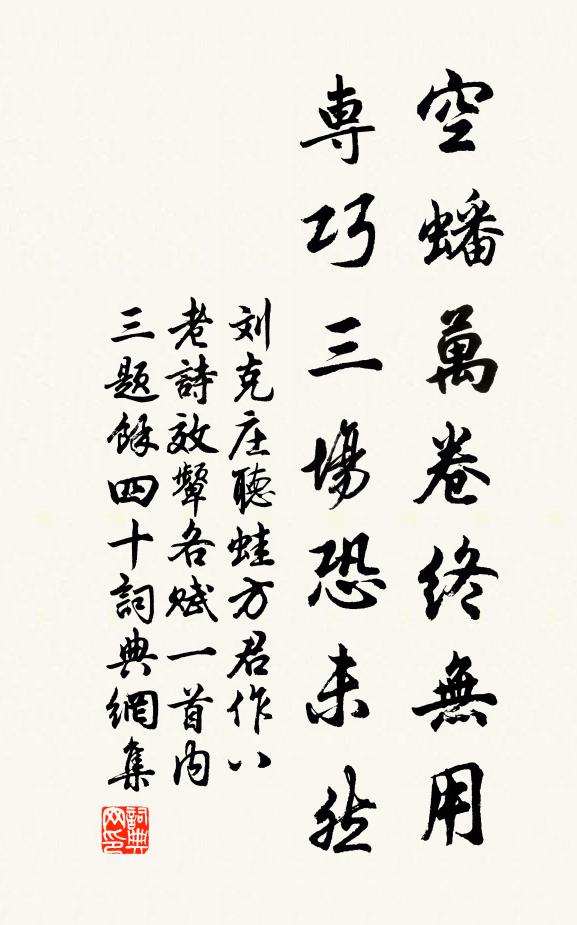 空蟠萬卷終無用
専巧三場恐未然
刘克庄聽蛙方君作八
老詩效顰各赋一首内
三題餘四十詞典網集
詞典网印